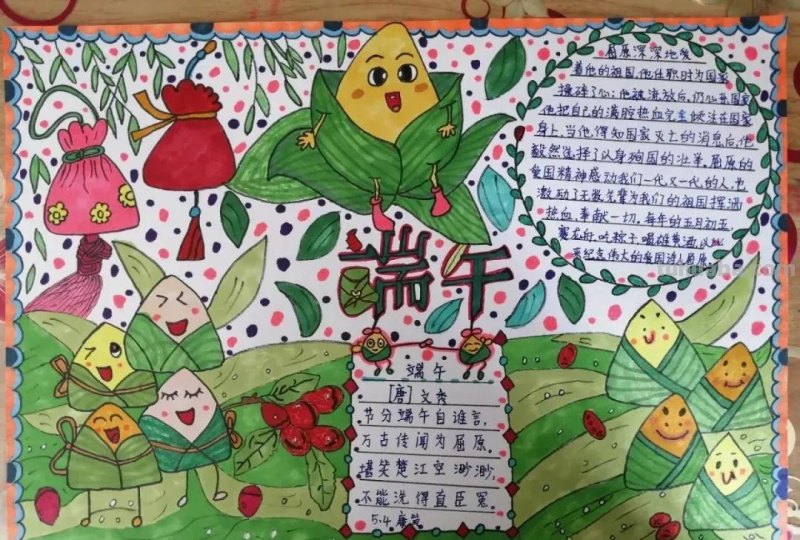 屈原深深地爱
着他的祖国,他任职时为国家
操碎了心;他被流放后,仍心系国家
他把自己的满腔热血完全倾注在国家
身上,当他得知国家灭亡的消息后,他
毅然选择了以身殉国的壮举。屈原的
爱国精神感动我们一代又一代的人,也
激励了无数先辈为我们的祖国挥洒
热血,奉献一切,每年的五月初五,
赛龙舟,吃粽子,喝雄黄酒,以此
来纪念伟大的爱国诗人屈原。
端午
端午
[唐]文秀
节分端午自谁言,
万古传闻为屈原。
堪笑楚江空渺渺,
不能洗得直臣冤。
5.4